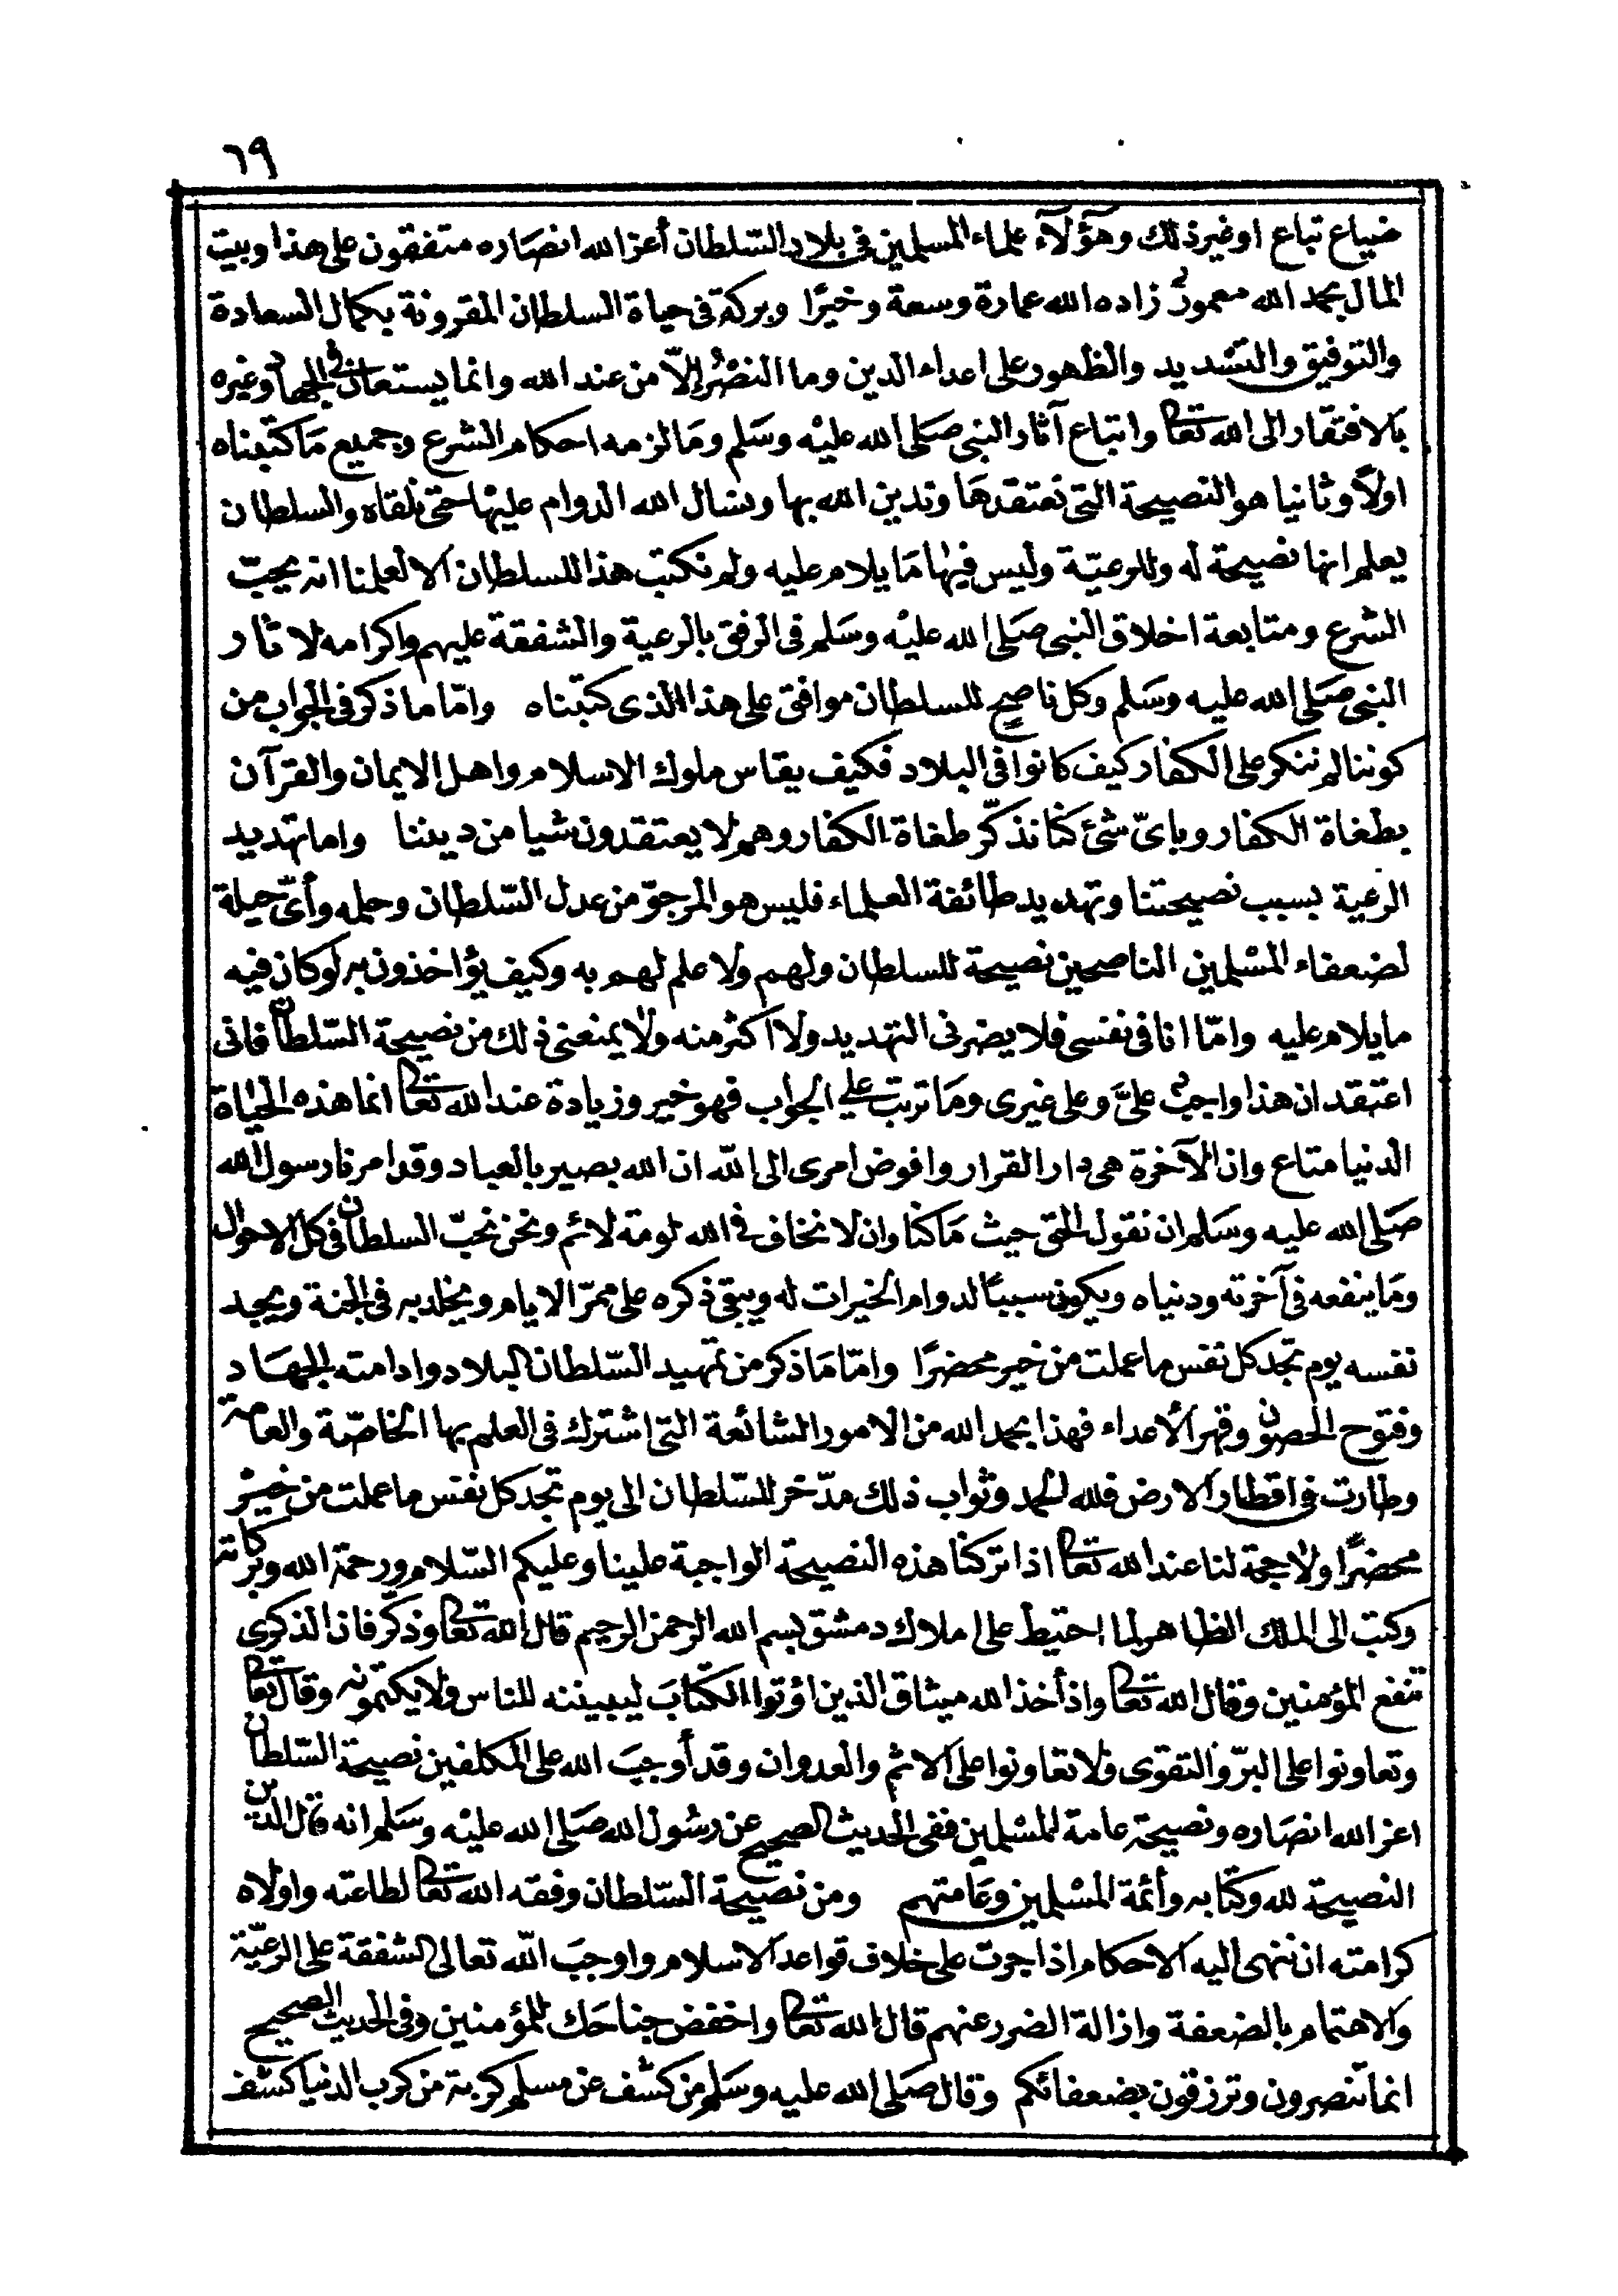 ٦٩
ضياع تباع اوغيرذلك وهؤلآء علماء المسلمين فى بلاد السّلطان أعزالله انصَاره متفقون على هذا وبيت
المال بحمد الله معمورٌ زاده الله عمارة وسعة وخيرًا وبركة فى حياة السلطان المقرونة بكمال السعادة
والتوفيق والتسْديد والظهور على اعداء الدين وما النصْرُ إلاّ من عند الله وانما يستعان فى الجهاد وغيره
بالافتقار الى الله تعالى واتباع آثار النبى صَلى الله عليْه وسَلم ومَالزمه احكام الشرع وجميع مَا كتبناه
اولاً وثانيا هو النصيحة التى نعتقدهَا وندين الله بها ونسال الله الدوام عليْها حتى نلقاه والسلطان
يعلم انها نصيحة له وللرعيّة وليس فيها مَا يلام عليه ولم نكتب هذا للسلطان الا لعلمنا انه يحبّ
الشرع ومتابعة اخلاق النبى صَلى الله عليْه وسَلم فى الرفق بالرعية والشفقة عليهم واكرامه لاثار
النبى صَلى الله عليه وسَلم وكل ناصح للسلطان موافق على هذا الذى كتبناه وامّا ما ذكر فى الجواب من
كوننا لم ننكر على الكفار كيف كانوا فى البلاد فكيف يقاس ملوك الاسلام واهل الايمان والقرآن
بطغاة الكفار وباىّ شئ كنا نذكّر طغاة الكفار وهم لا يعتقدون شيا من ديننا واما تهديد
الرعية بسبب نصيحتنا وتهديد طائفة العلماء فليس هو المرجوّ من عدل السّلطان وحلمه وأىّ حيلة
لضعفاء المسْلمين الناصحين نصيحة للسلطان ولهم ولا علم لهم به وكيف يؤاخذون به لو كان فيه
ما يلام عليه وامّا انا فى نفسى فلا يضرنى التهديد ولا اكثر منه ولا يمنعنى ذلك من نصيحة السّلطان فانى
اعتقد ان هذا واجبٌ علىَّ وعلى غيرى ومَا ترتب على الجواب فهو خير وزيادة عند الله تعالى انما هذه الحيَاة
الدنيا متاع وان الآخرة هى دار القرار وافوض امرى الى الله ان الله بصير بالعباد وقد امرنا رسول الله
صَلى الله عليه وسَلم ان نقول الحق حيث مَا كنا وان لا نخاف فى الله لومة لائم ونحن نحبّ السلطان فى كل الاحوال
ومَا ينفعه فى آخرته ودنياه ويكون سببًا لدوام الخيرات له ويبقى ذكره على ممرّ الايام ويخلد به فى الجنة ويجد
نفسه يوم تجد كل نفس ما عملت من خير محضرًا وامّا مَا ذكر من تمهيد السّلطان البلاد وادامته الجهَاد
وفتوح الحصون وقهر الأعداء فهذا بحمد الله من الامور الشائعة التى اشترك فى العلم بها الخاصّة والعامة
وطارت فى اقطار الارض فلله الحمد وثواب ذلك مدّخر للسّلطان الى يوم تجد كل نفس ما عملت من خيْر
محضرًا ولا حجة لنا عند الله تعالى اذا تركنا هذه النصيحة الواجبة علينا وعليكم السّلام ورحمة الله وبركاته
وكتب الى الملك الظاهر لما احتيط على املاك دمشق بسم الله الرحمن الرحيم قال الله تعالى وذكّر فان الذكرى
تنفع المؤمنين وقال الله تعالى واذ أخذ الله ميثاق الذين اؤتوا الكتابَ ليبيننه للناس ولا يكتمونه وقال تعالى
وتعاونوا على البرّ والتقوى ولا تعاونوا على الاثم والعدوان وقد أوجبَ الله على المكلفين نصيحة السّلطان
اعز الله انصَاره ونصيحة عامة المسْلمين ففى الحديث الصحيح عن رسُول الله صَلى الله عليْه وسَلم انه قال الدين
النصيحة لله وكتابه وأئمة المسْلمين وعَامتهم ومن نصيحة السّلطان وفقه الله تعالى لطاعته واولاه
كرامته ان ننهى اليه الاحكام اذا جرت على خلاف قواعد الاسلام واوجبَ الله تعالى الشفقة على الرعيّة
والاهتمام بالضعفة وازالة الضرر عنهم قال الله تعالى واخفض جناحَك للمؤمنين وفى الحديث الصحيح
انما تنصرون وترزقون بضعفائكم وقال صَلى الله عليه وسَلم من كشف عن مسلم كربة من كرب الدنيا كشف